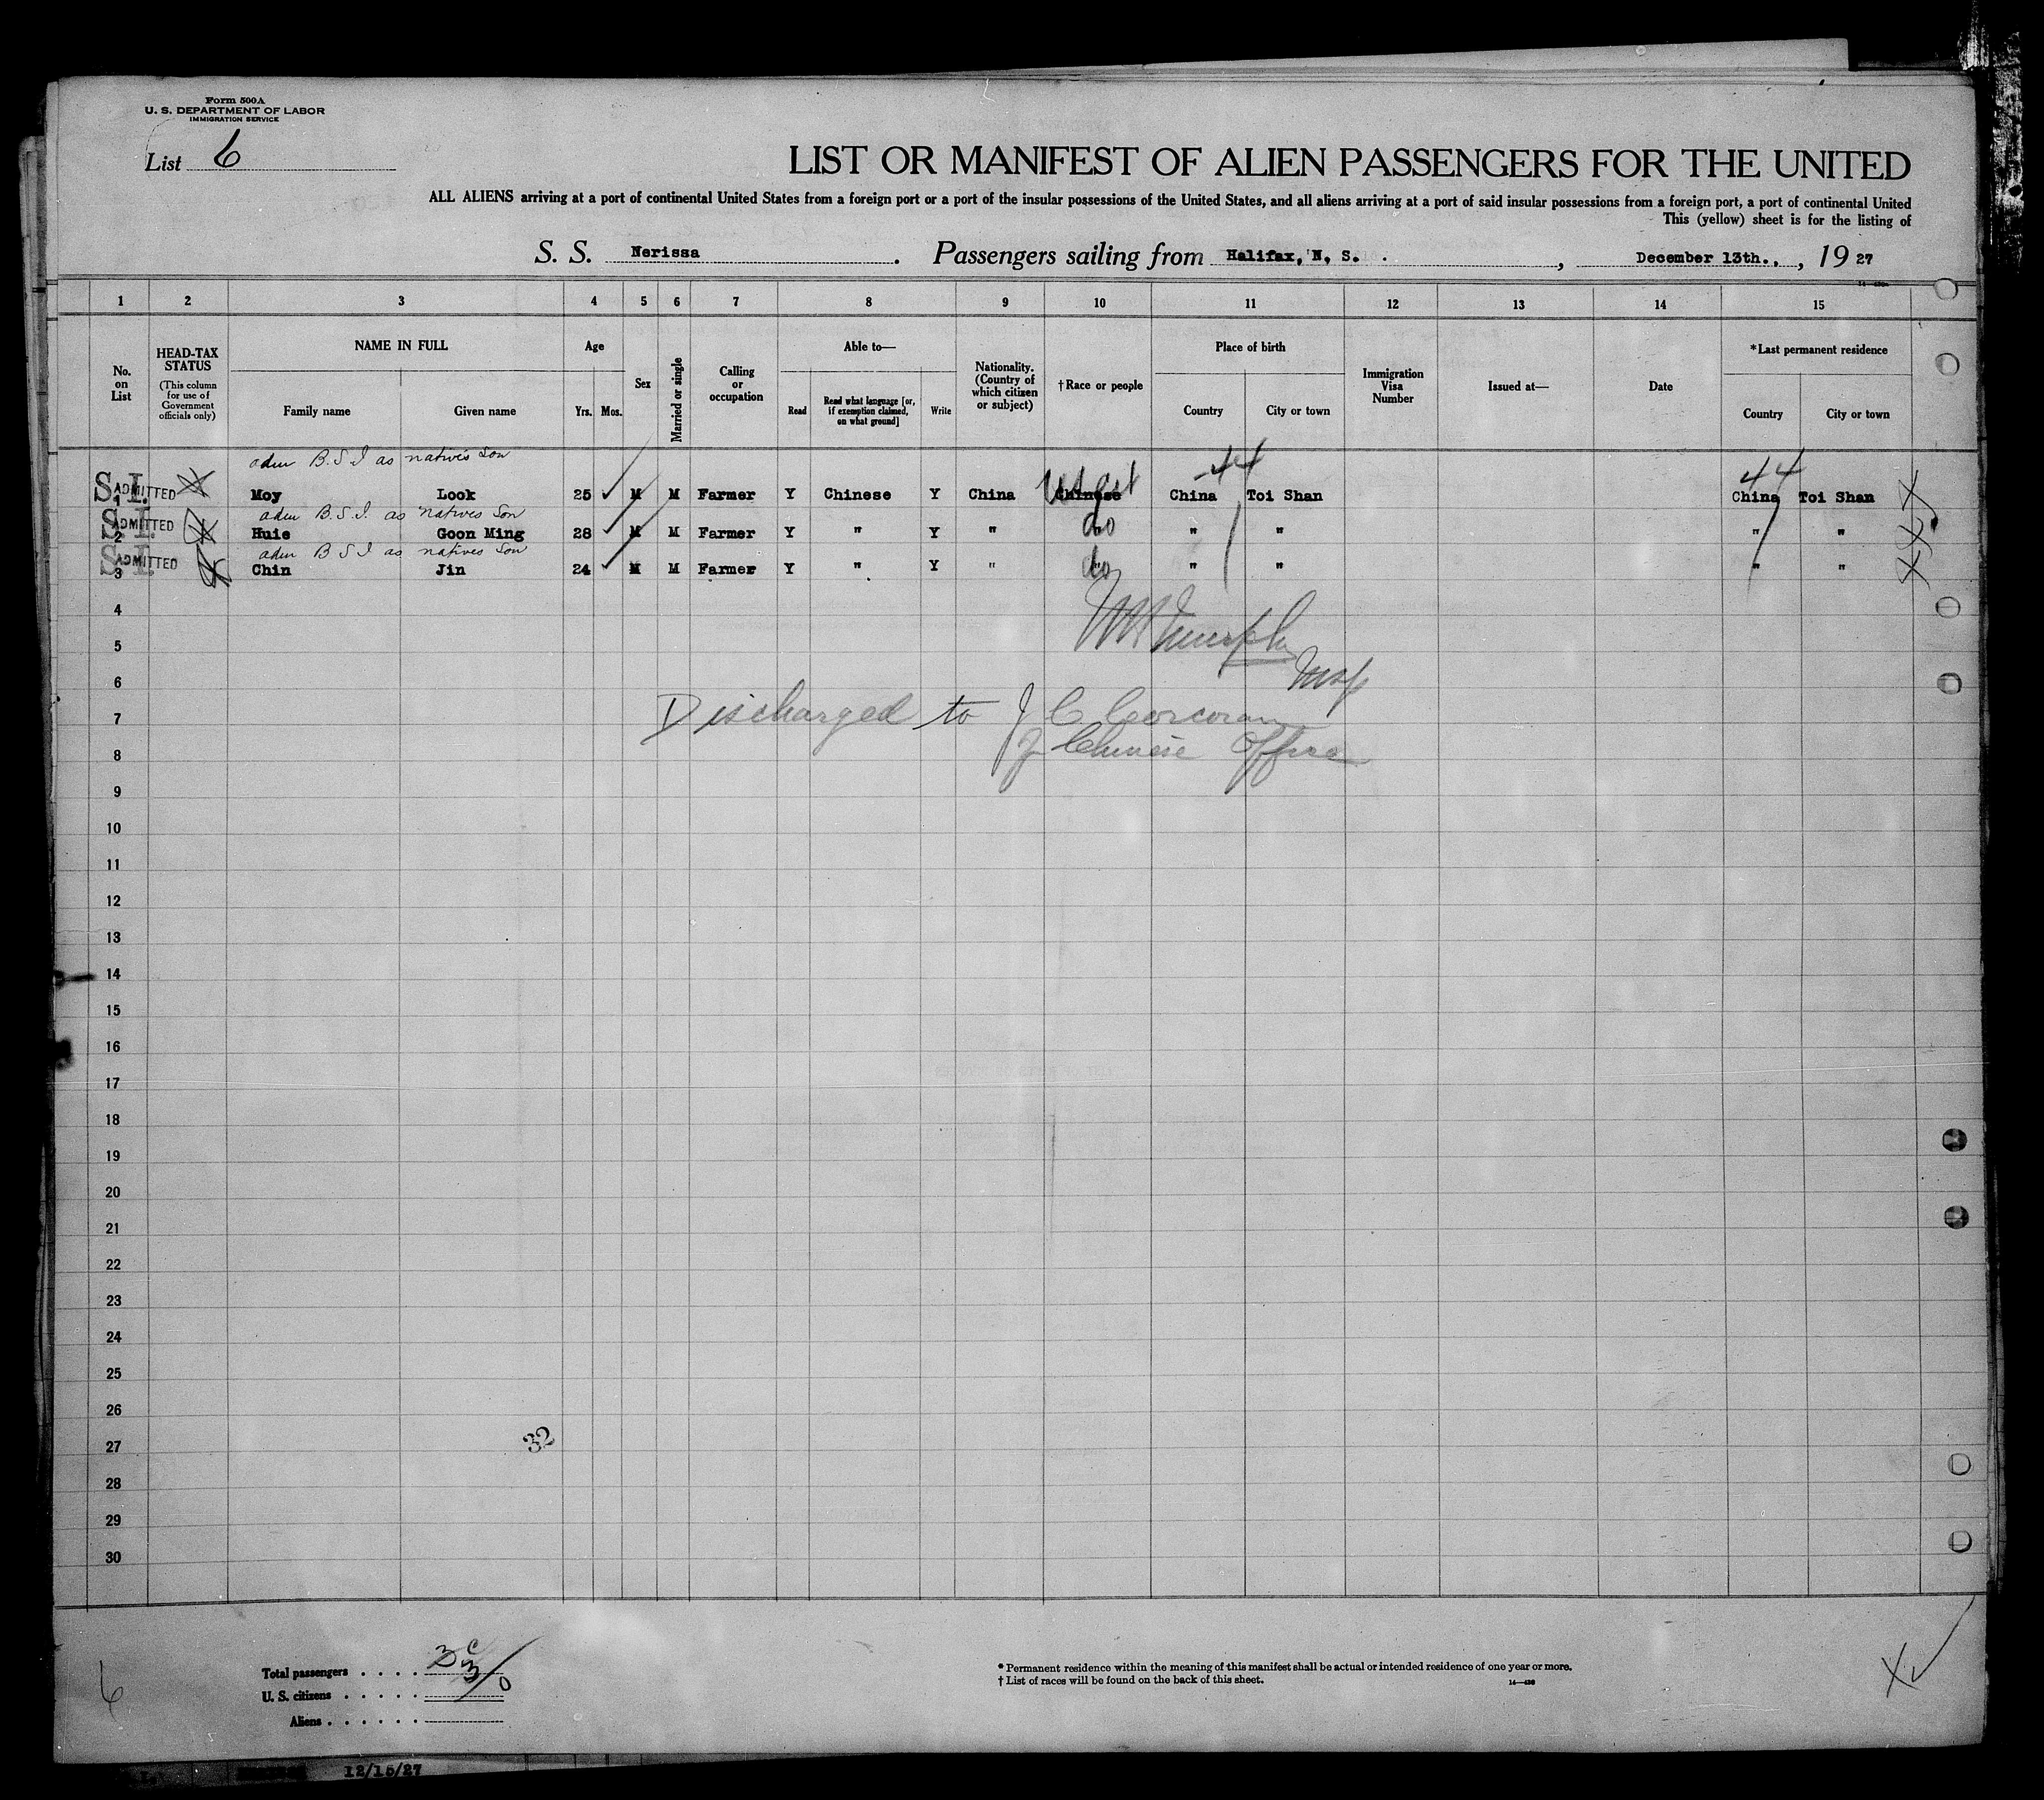 Form 500A
U. S. DEPARTMENT OF LABOR
IMMIGRATION SERVICE
List 6
LIST OR MANIFEST OF ALIEN PASSENGERS FOR THE UNITED
ALL ALIENS arriving at a port of continental United States from a foreign port or a port of the insular possessions of the United States, and all aliens arriving at a port of said insular possessions from a foreign port, a port of continental United
This (yellow) sheet is for the listing of
S. S. Nerissa . Passengers sailing from Halifax, N. S. , December 13th. , 19 27
1 2 3 4 5 6 7 8 9 10 11 12 13 14 15
No. on List
HEAD-TAX STATUS (This column for use of Government officials only)
NAME IN FULL
Family name Given name
Age
Yrs. Mos.
Sex
Married or single
Calling or occupation
Able to—
Read Read what language [or, if exemption claimed, on what ground] Write
Nationality. (Country of which citizen or subject)
†Race or people
Place of birth
Country City or town
Immigration Visa Number
Issued at—
Date
*Last permanent residence
Country City or town
adm B.S.I as native's son
44 44
S.I. ADMITTED 1 Moy Look 25 M M Farmer Y Chinese Y China Chinese China Toi Shan China Toi Shan
adm B.S.I. as natives son
S.I. ADMITTED 2 Huie Goon Ming 28 M M Farmer Y " Y " do " " " "
adm B S I as natives son
S.I. ADMITTED 3 Chin Jin 24 M M Farmer Y " Y " do " " " "
4
5 Murphy
6 Insp
7 Discharged to J C Corcoran
8 Chinese Office
9
10
11
12
13
14
15
16
17
18
19
20
21
22
23
24
25
26
27 32
28
29
30
Total passengers . . . . 3
U. S. citizens . . . . . 3/0
Aliens . . . . . .
* Permanent residence within the meaning of this manifest shall be actual or intended residence of one year or more.
† List of races will be found on the back of this sheet.
14—430
6
12/15/27